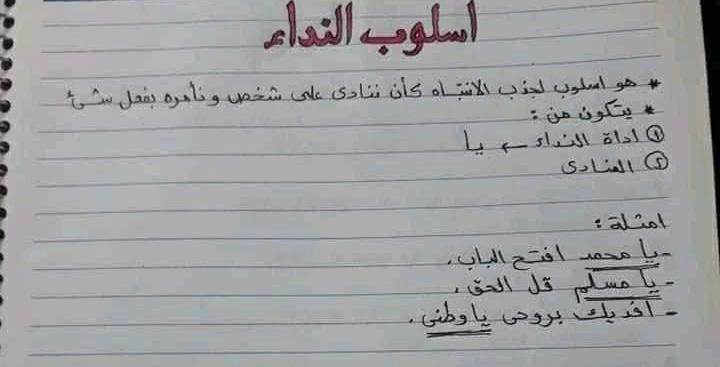 اسلوب النداء
* هو اسلوب لجذب الانتباه كأن ننادى على شخص ونأمره بفعل شئ
* يتكون من :
① اداة النداء ← يا
② المنادى
امثلة :
- يا محمد افتح الباب .
- يا مسلم قل الحق .
- افديك بروحى يا وطنى .